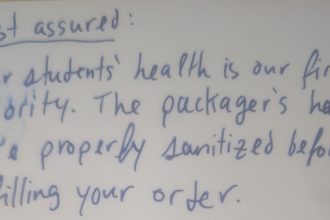 st assured:
r students' health is our fir
ority. The packager's ha
e properly sanitized befo
filling your order.